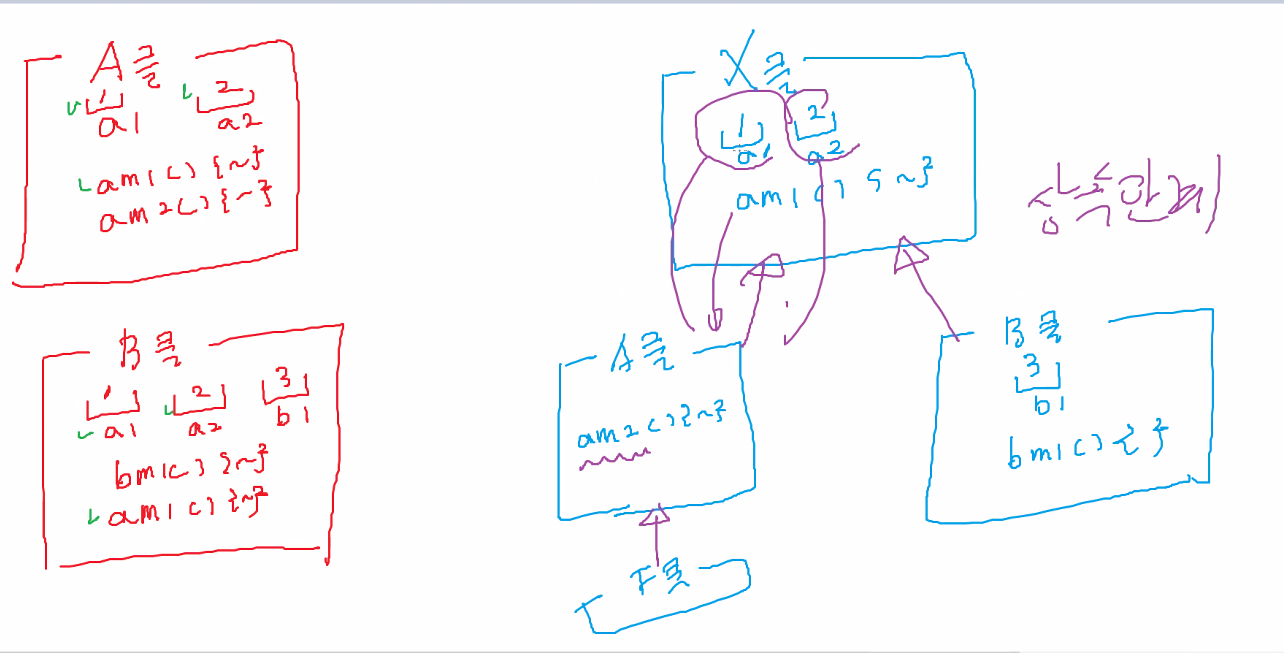 A클
1 2
a1 a2
am1() {~}
am2() {~}
B클
1 2 3
a1 a2 b1
bm1() {~}
am1() {~}
X클
1 2
a1 a2
am1() {~}
상속관계
A클
am2() {~}
B클
3
b1
bm1() { }
F클